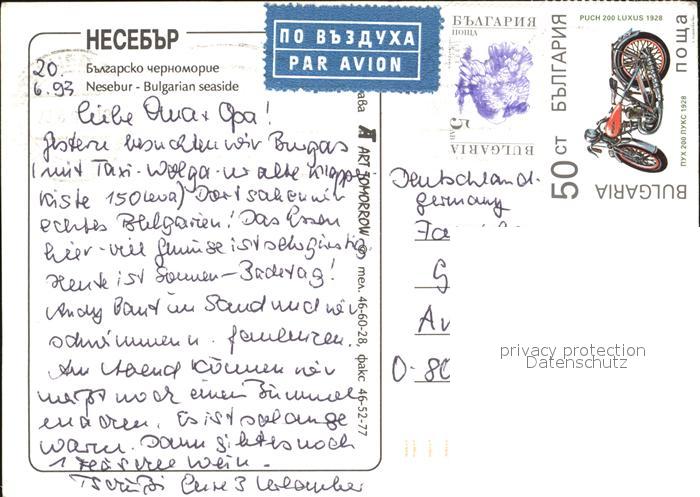 НЕСЕБЪР
Българско черноморие
Nesebur - Bulgarian seaside
ПО ВЪЗДУХА
PAR AVION
БЪЛГАРИЯ
ПОЩА
5
BULGARIA
PUCH 200 LUXUS 1928
ПУХ 200 ЛУКС 1928
БЪЛГАРИЯ
поща
50 СТ
BULGARIA
ART TOMORROW © тел. 46-60-28, факс 46-52-77
20.
6.93
Liebe Oma + Opa!
Gestern besuchten wir Burgas
(mit Taxi-Wolga-uralte Klapp-
kiste 150 Leva) Dort sahen wir
echtes Bulgarien! Das Essen
hier - viel Gemüse ist sehr günstig.
Heute ist Sonnen-Badetag!
Andy baut im Sand und wir
schwimmen u. faulenzen.
Am Abend können wir
noch einen Bummel
machen. Es ist so lange
warm. Dann gibt es noch
1 Wein.
Tschüß Eure 3 Urlauber
Deutschland-
Germany
Fa
G
Av
O-80
privacy protection
Datenschutz